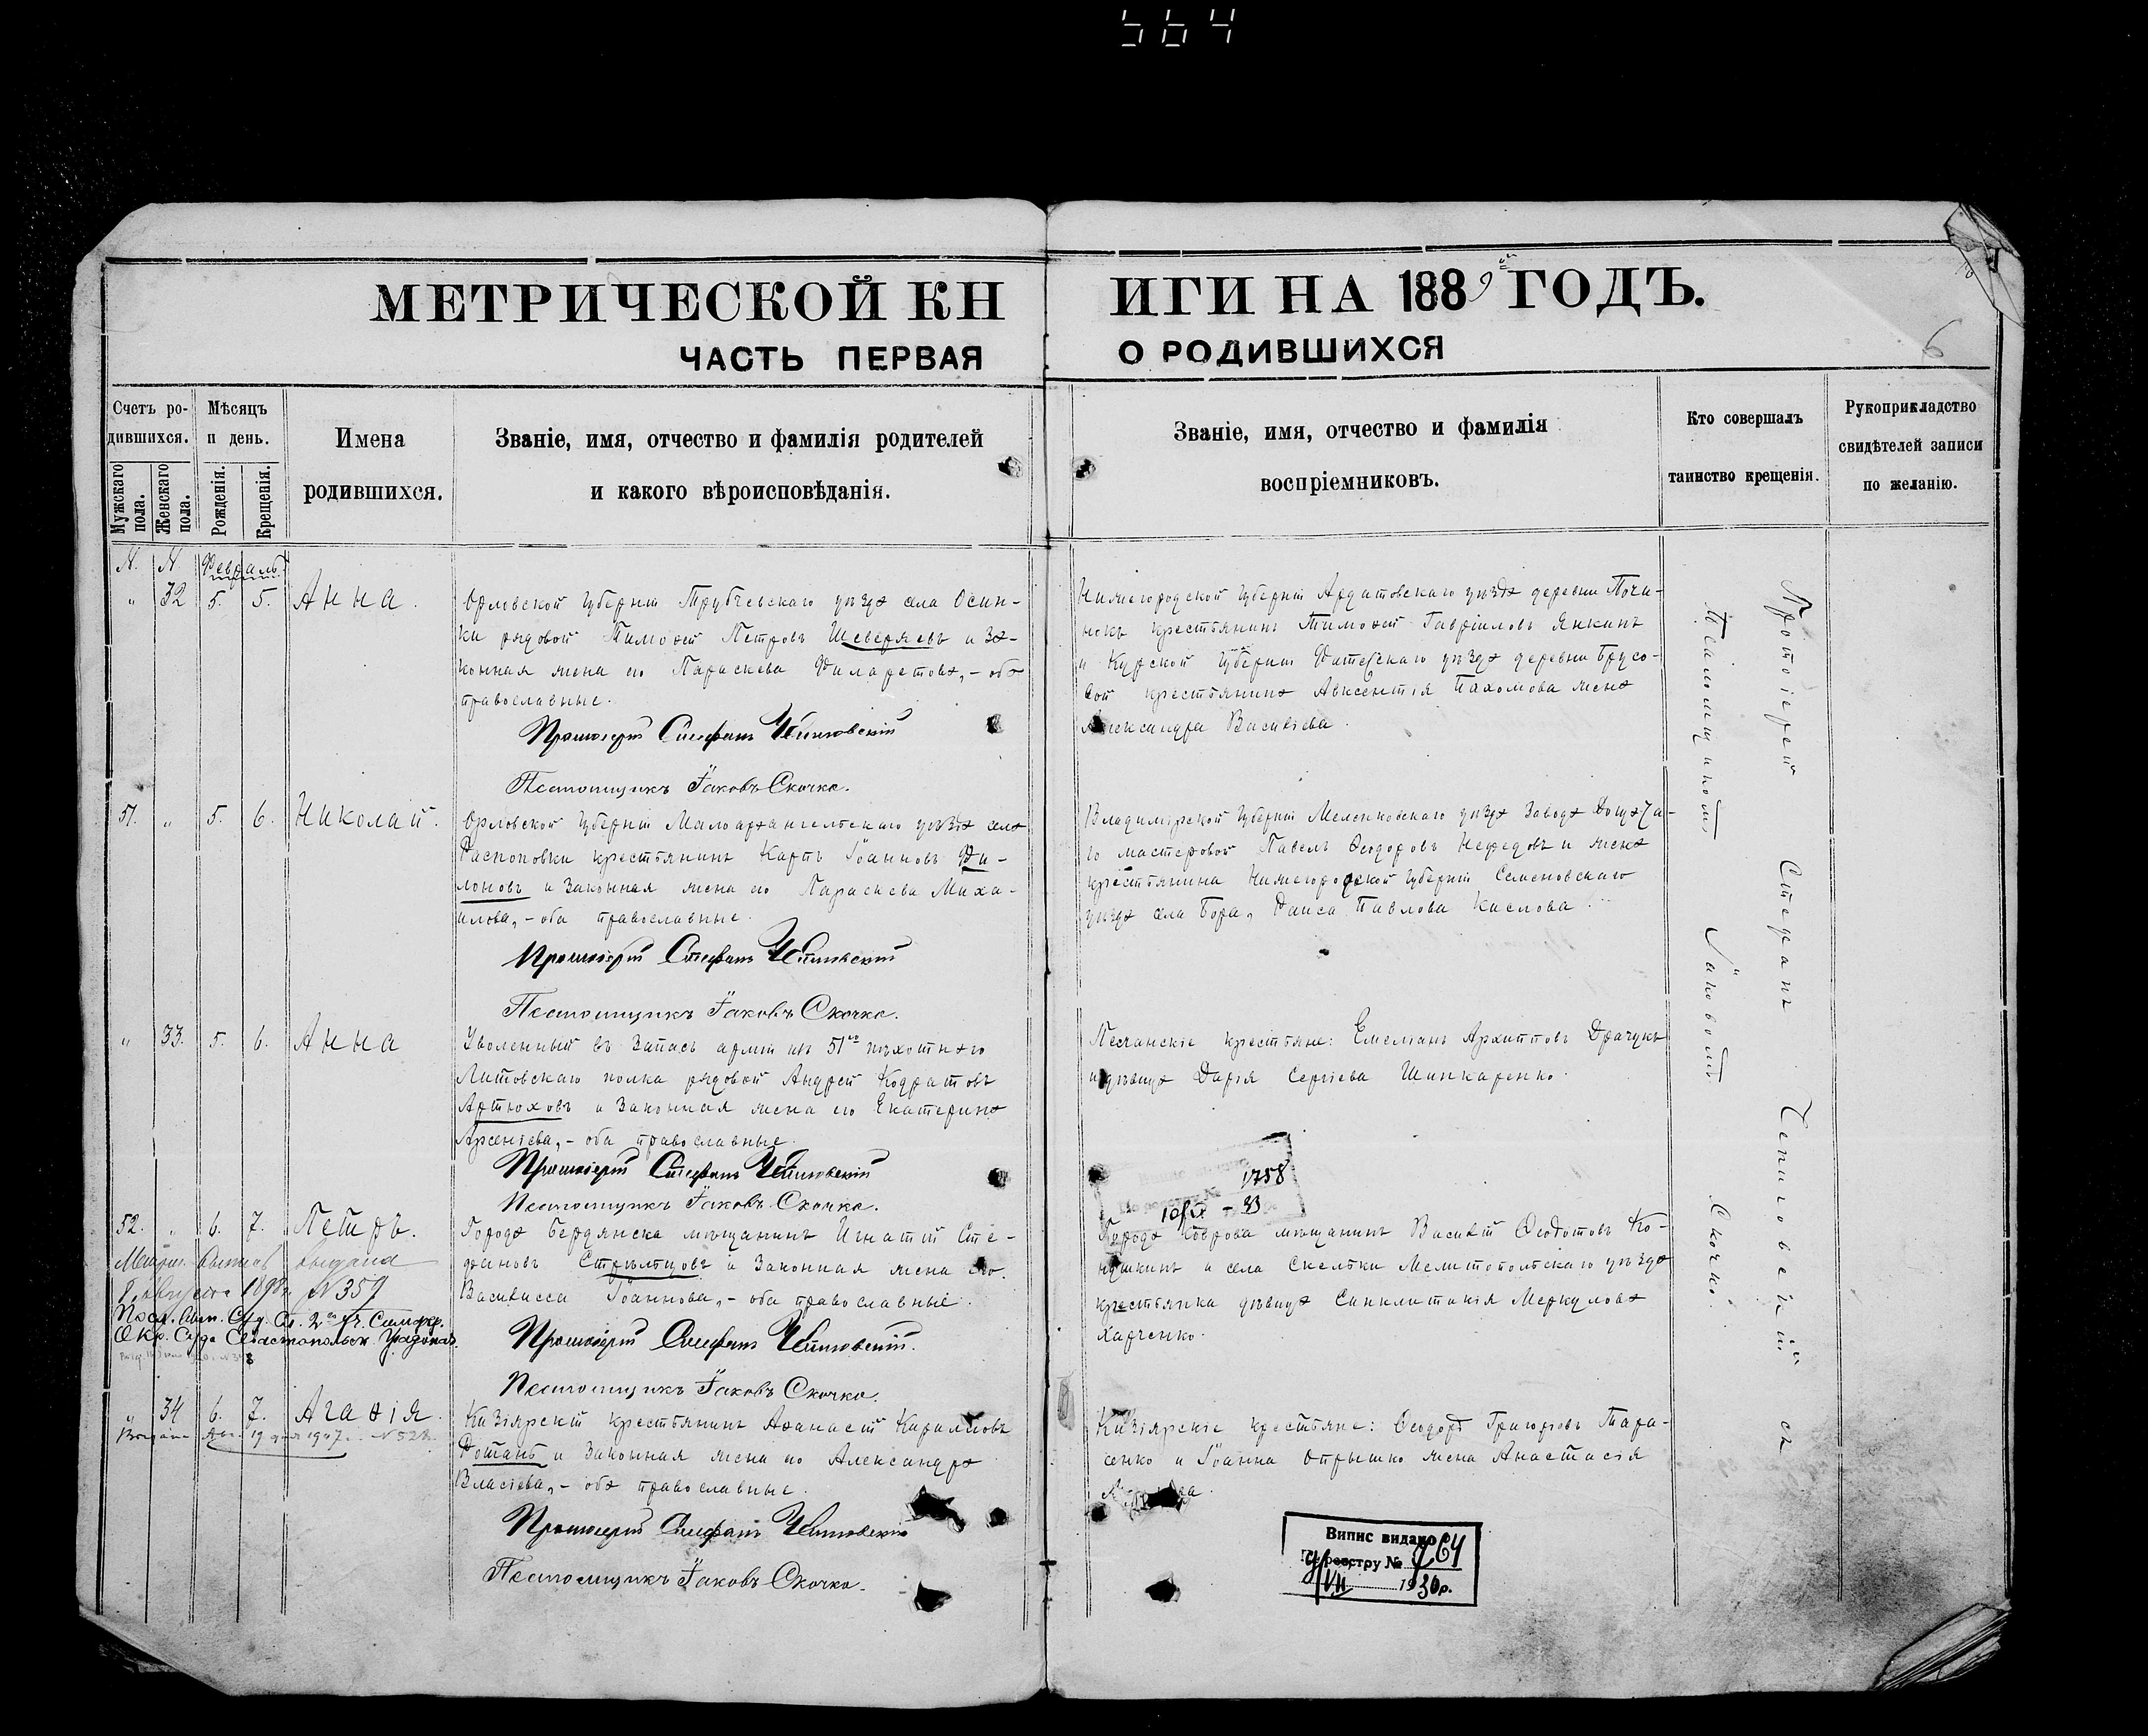 564
МЕТРИЧЕСКОЙ КНИГИ НА 1889й ГОДЪ.
ЧАСТЬ ПЕРВАЯ О РОДИВШИХСЯ
6
Счетъ ро-
дившихся.
Мужскаго пола.
Женскаго пола.
Мѣсяцъ
и день.
Рожденія.
Крещенія.
Имена
родившихся.
Званіе, имя, отчество и фамилія родителей
и какого вѣроисповѣданія.
Званіе, имя, отчество и фамилія
воспріемниковъ.
Кто совершалъ
таинство крещенія.
Рукоприкладство
свидѣтелей записи
по желанію.
N. N Февраль
" 32 5. 5. Анна.
Орловской Губерніи Трубчевскаго уѣзда села Осин-
ки рядовой Тимоѳей Петровъ Шеверяевъ и за-
конная жена его Параскева Филаретова,- оба
православные.
Протоіерей Стефанъ Чепиговскій
Псаломщикъ Іаковъ Скочко.
Нижегородской Губерніи Ардатовскаго уѣзда деревни Почи-
нокъ крестьянинъ Тимоѳей Гавріиловъ Янкинъ
и Курской Губерніи Фатежскаго уѣзда деревни Брусо-
вой крестьянина Авксентія Пахомова жена
Александра Василіева.
51. " 5. 6. Николай.
Орловской Губерніи Малоархангельскаго уѣзда села
Распоповки крестьянинъ Карпъ Іоанновъ Фи-
лоновъ и законная жена его Параскева Миха-
илова,- оба православные.
Протоіерей Стефанъ Чепиговскій
Псаломщикъ Іаковъ Скочко.
Владимірской Губерніи Меленковскаго уѣзда Завода
мастеровой Павелъ Ѳеодоровъ Нефедовъ и жена
крестьянина Нижегородской Губерніи Семеновскаго
уѣзда села Бора, Раиса Павлова Кислова
" 33. 5. 6. Анна
Уволенный въ запасъ арміи изъ 51го пѣхотнаго
Литовскаго полка рядовой Андрей Кодратовъ
Артюховъ и законная жена его Екатерина
Арсеніева,- оба православные.
Протоіерей Стефанъ Чепиговскій
Псаломщикъ Іаковъ Скочко.
Песчанскіе крестьяне: Емеліанъ Архипповъ Драчукъ
и дѣвица Дарія Сергіева Шинкаренко.
1758
33
52. " 6. 7. Петръ.
выдана
8 августа 1898 г. N 359
Города Бердянска мѣщанинъ Игнатій Сте-
фановъ Стрѣльцовъ и законная жена его
Василисса Іоаннова,- оба православные.
Протоіерей Стефанъ Чепиговскій.
Псаломщикъ Іаковъ Скочко.
Города Коврова мѣщанинъ Василій Ѳеодотовъ Ко-
и села Скельки Мелитопольскаго уѣзда
крестьянка дѣвица Синклитикія Меркулова
Харченко.
" 34 6. 7. Агаѳія.
1907 г. N 52
Кизіярскій крестьянинъ Аѳанасій Кирилловъ
Ротань и законная жена его Александра
Власіева,- оба православные.
Протоіерей Стефанъ Чепиговскій
Псаломщикъ Іаковъ Скочко.
Кизіярскіе крестьяне: Ѳеодоръ Григоріевъ Тара-
сенко и Іоанна Опрышко жена Анастасія
Протоіерей Стефанъ Чепиговскій съ
Псаломщикомъ Іаковомъ Скочко.
Випис видано
По реєстру № 764
VII 1930р.